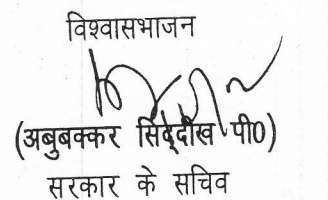 विश्वासभाजन
(अबुबक्कर सिद्दीख पी0)
सरकार के सचिव